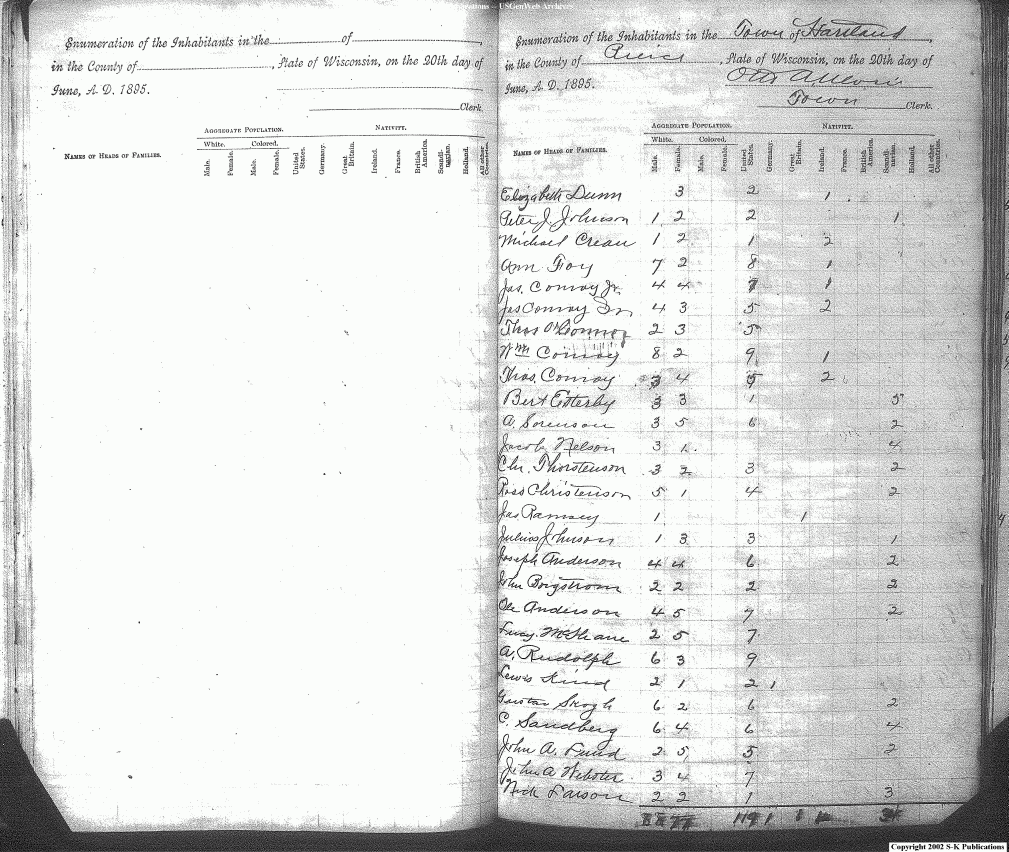 — USGenWeb Archives
Enumeration of the Inhabitants in the of ,
in the County of , State of Wisconsin, on the 20th day of
June, A. D. 1895.
Clerk.
AGGREGATE POPULATION. NATIVITY.
White. Colored.
NAMES OF HEADS OF FAMILIES. Male. Female. Male. Female. United States. Germany. Great Britain. Ireland. France. British America. Scandinavian. Holland. All other Countries.
Enumeration of the Inhabitants in the Town of Hartland,
in the County of Pierce, State of Wisconsin, on the 20th day of
June, A. D. 1895.
Town Clerk.
AGGREGATE POPULATION. NATIVITY.
White. Colored.
NAMES OF HEADS OF FAMILIES. Male. Female. Male. Female. United States. Germany. Great Britain. Ireland. France. British America. Scandinavian. Holland. All other Countries.
Elizabeth Dunn 3 2 1
Peter J. Johnson 1 2 2 1
Michael Crean 1 2 1 2
Ann Foy 7 2 8 1
Jas. Conroy Jr. 4 4 7 1
Jas Conroy Sr 4 3 5 2
Thos O'Connor 2 3 5
Wm Conroy 8 2 9 1
Thos. Conroy 3 4 5 2
Bert Esterby 3 3 1 5
A. Sorenson 3 5 6 2
Jacob Nelson 3 1 4
Chr. Thorstenson 3 2 3 2
Ross Christenson 5 1 4 2
Jas Ramsey 1 1
Julius Johnson 1 3 3 1
Joseph Anderson 4 4 6 2
John Borgstrom 2 2 2 2
Ole Anderson 4 5 7 2
2 5 7
A. Rudolph 6 3 9
Lewis Kind 2 1 2 1
Gustav Skogh 6 2 6 2
C. Sandberg 6 4 6 4
John A. Lund 2 5 5 2
John A Webster 3 4 7
Nick Larson 2 2 1 3
Copyright 2002 S-K Publications